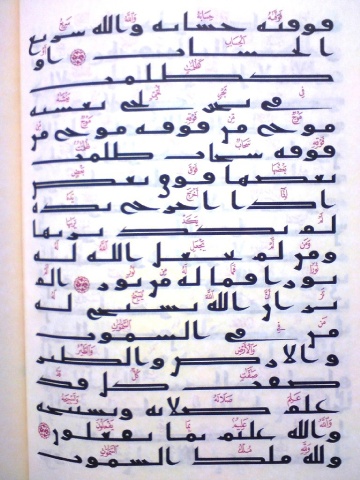 فوفىه حسابه والله سريع
الحساب ۝ او
كظلمت
في بحر لجي يغشيه
موج من فوقه موج من
فوقه سحاب ظلمت
بعضها فوق بعض
اذا اخرج يده
لم يكد يريها
ومن لم يجعل الله له
نورا فما له من نور ۝ الم
تر ان الله يسبح له
من في السموت
والارض والطير
صفت كل قد
علم صلاته وتسبيحه
والله عليم بما يفعلون ۝
ولله ملك السموت